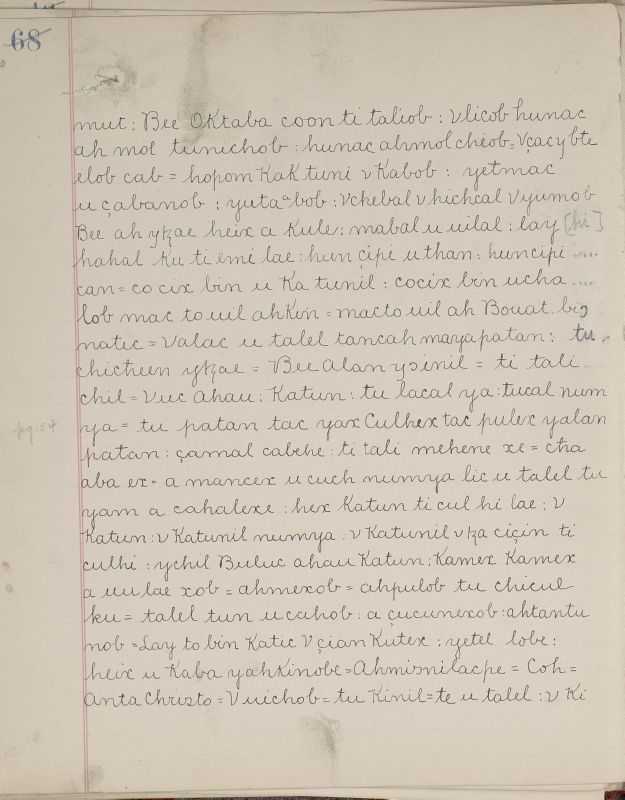 68
mut : Bee Oktaba coon ti taliob : vlicob hunac
ah mol tunichob : hunac ahmol cheob = Vçacybte
elob cab = hopom Kak tuni v Kabob : yetmac
u çabanob : yutaᵃbob : Vchebal v hichcal Vyumob
Bee ah yꜩae heix a Kule : mabal u uilal : lay [hi]
hahal Ku ti emi lae : hun çipi uthan : huncipi ....
can = co cix bin u Ka tunil : cocix bin ucha ....
lob mac to uil ahkin = macto uil ah Bouat. big
natic = Valac u talel tancah mayapatan : tu.
chictun yꜩae = Bee Alan ysinil = ti tali
chil = Vuc Ahau : Katun : tu lacal ya : tucal num
ya = tu patan tac yax Culhex tac pulex yalan
pg. 54
patan : çamal cabehe : ti tali mehene xe = cħa
aba ex = a mancex u cuch numya lic u talel tu
yam a cahalexe : hex Katun ti cul hi lae : v
Katun : v Katunil numya : v Katunil vꜩa ciçin ti
culhi : ychil Buluc ahau Katun : Kamex Kamex
a uu lae xob = ahmexob = ahpulob tu chicul
ku = talel tun u cahob : a çucunexob : ahtantu
nob = Lay to bin Katic V çian Kutex : yetel lobe :
heix u Kaba yahkinobe = Ahmisnilacpe = Coh =
Anta Christo = Vuichob = tu Kinil = te u talel : v Ki